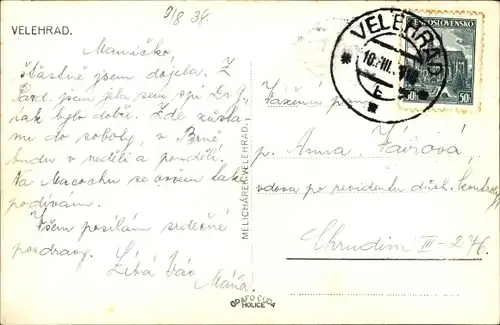 9/8 34.
VELEHRAD.
Mamičko,
šťastně jsem dojela. Z
Pard. jsem jela sem spí Dr. J,
tak bylo dobře. Zde zůsta
nu do soboty, v Brně
budu v neděli a pondělí.
Na Macochu se ovšem také
podívám.
Všem posílám srdečné
pozdravy.
Líbá Vás
Máňa.
MELICHÁREK VELEHRAD.
GRAFO ČUDA
HOLICE
VELEHRAD
10. VIII.
b
ČESKOSLOVENSKO
50h
Vážená paní
p. Anna Vávrová,
vdova po revidentu důch. kontroly
Chrudim III-276.